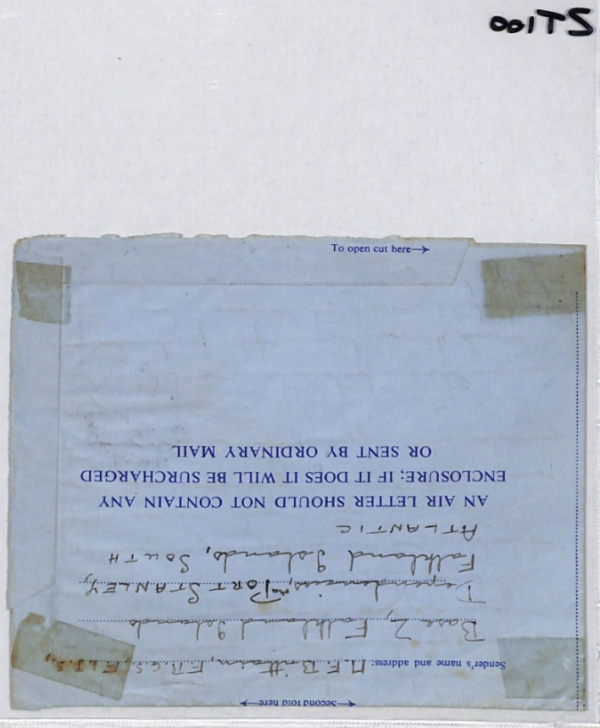 To open cut here
Second fold here
Sender's name and address: Brittain, F.I.D.S.,
Base Z, Falkland Islands
Dependencies, PORT STANLEY,
Falkland Islands, SOUTH
ATLANTIC
AN AIR LETTER SHOULD NOT CONTAIN ANY
ENCLOSURE; IF IT DOES IT WILL BE SURCHARGED
OR SENT BY ORDINARY MAIL